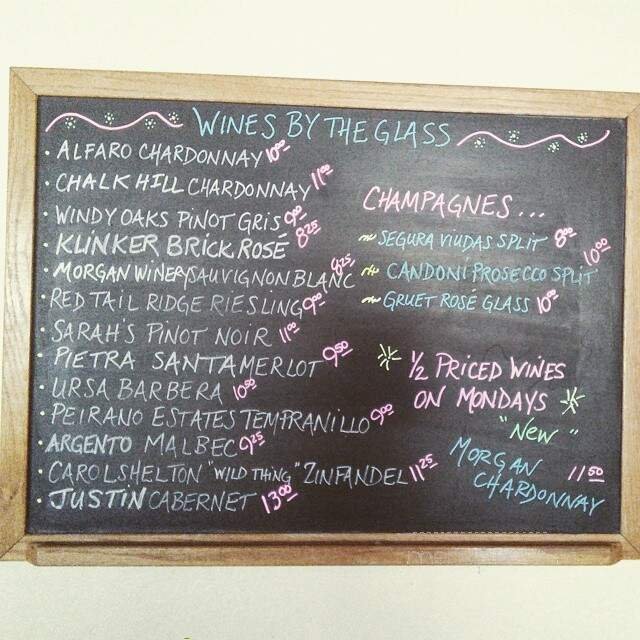 WINES BY THE GLASS
· ALFARO CHARDONNAY 10⁰⁰
· CHALK HILL CHARDONNAY 11⁰⁰
· WINDY OAKS PINOT GRIS 9⁰⁰
· KLINKER BRICK ROSÉ 8²⁵
· MORGAN WINERY SAUVIGNON BLANC
· RED TAIL RIDGE RIESLING 9⁰⁰
· SARAH'S PINOT NOIR 11⁰⁰
· PIETRA SANTA MERLOT 9⁵⁰
· URSA BARBERA 10⁵⁰
· PEIRANO ESTATES TEMPRANILLO 9⁰⁰
· ARGENTO MALBEC 9²⁵
· CAROL SHELTON "WILD THING" ZINFANDEL 11²⁵
· JUSTIN CABERNET 13⁰⁰
CHAMPAGNES...
~ SEGURA VIUDAS SPLIT 8⁰⁰
~ CANDONI PROSECCO SPLIT 10⁰⁰
~ GRUET ROSÉ GLASS 10⁰⁰
½ PRICED WINES
ON MONDAYS
"NEW"
MORGAN 11⁵⁰
CHARDONNAY